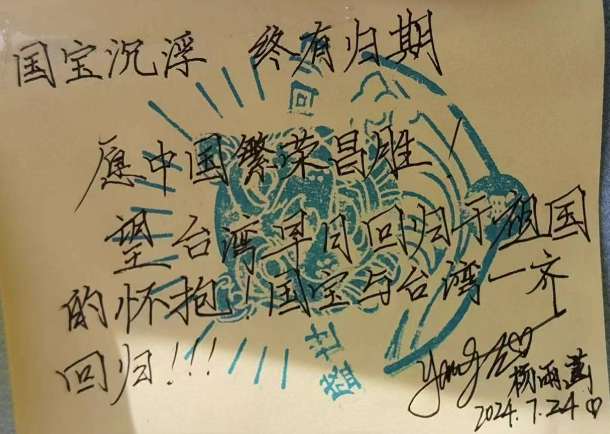 国宝沉浮 终有归期
愿中国繁荣昌胜!
望台湾早日回归于祖国
的怀抱!国宝与台湾一齐
回归!!!
杨雨
2024.7.24♡
回